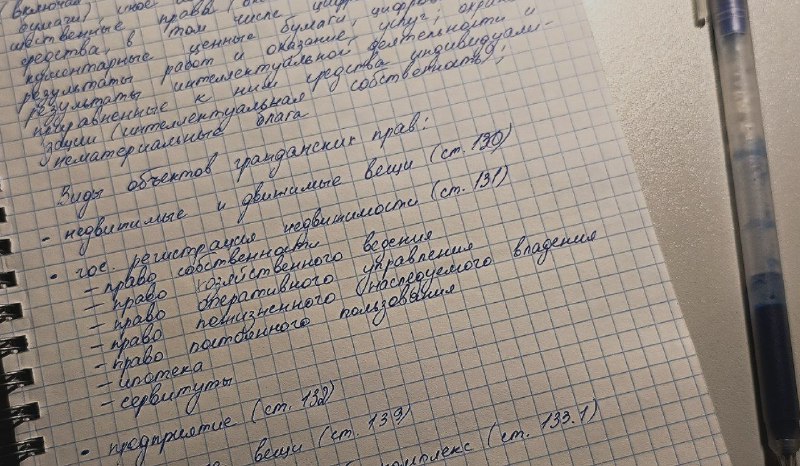 (включая
бумаги) иное
щественные права (
средства, в том числе цифр
кументарные ценные бумаги, цифров
результаты работ и оказание услуг; охран
результаты интеллектуальной деятельности и
приравненные к ним средства индивидуали-
зации (интеллектуальная собственность);
нематериальные блага
Виды объектов гражданских прав:
- недвижимые и движимые вещи (ст. 130)
• гос. регистрация недвижимости (ст. 131)
- право собственности
- право хозяйственного ведения
- право оперативного управления
- право пожизненного наследуемого владения
- право постоянного пользования
- ипотека
- сервитуты
• предприятие (ст. 132)
вещи (ст. 139)
комплекс (ст. 133.1)